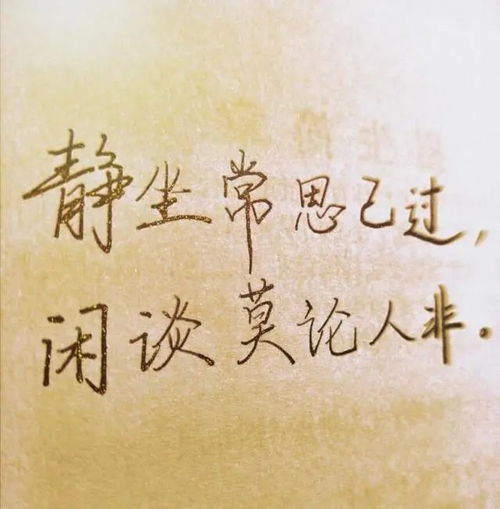 静坐常思己过,
闲谈莫论人非。